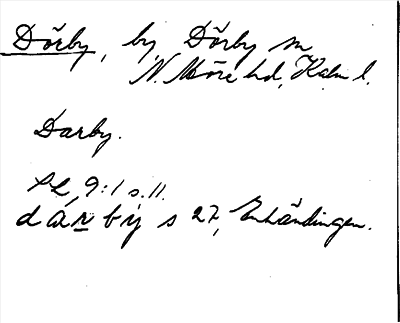 Dörby, by, Dörby sn
N. Möre hd, Kalm l.
Darby.
9:1 s. 11.
dárby s 27, Enhändingen.